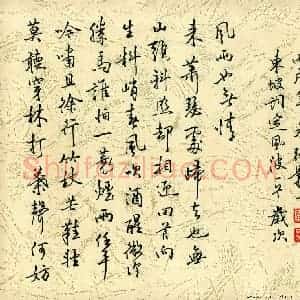 莫聽穿林打葉聲何妨
吟嘯且徐行竹杖芒鞋輕
勝馬誰怕一蓑煙雨任平
生料峭春風吹酒醒微冷
山頭斜照却相迎回首向
來蕭瑟處歸去也無
風雨也無情
東坡詞定風波 歲次
ShufaZiliao.com